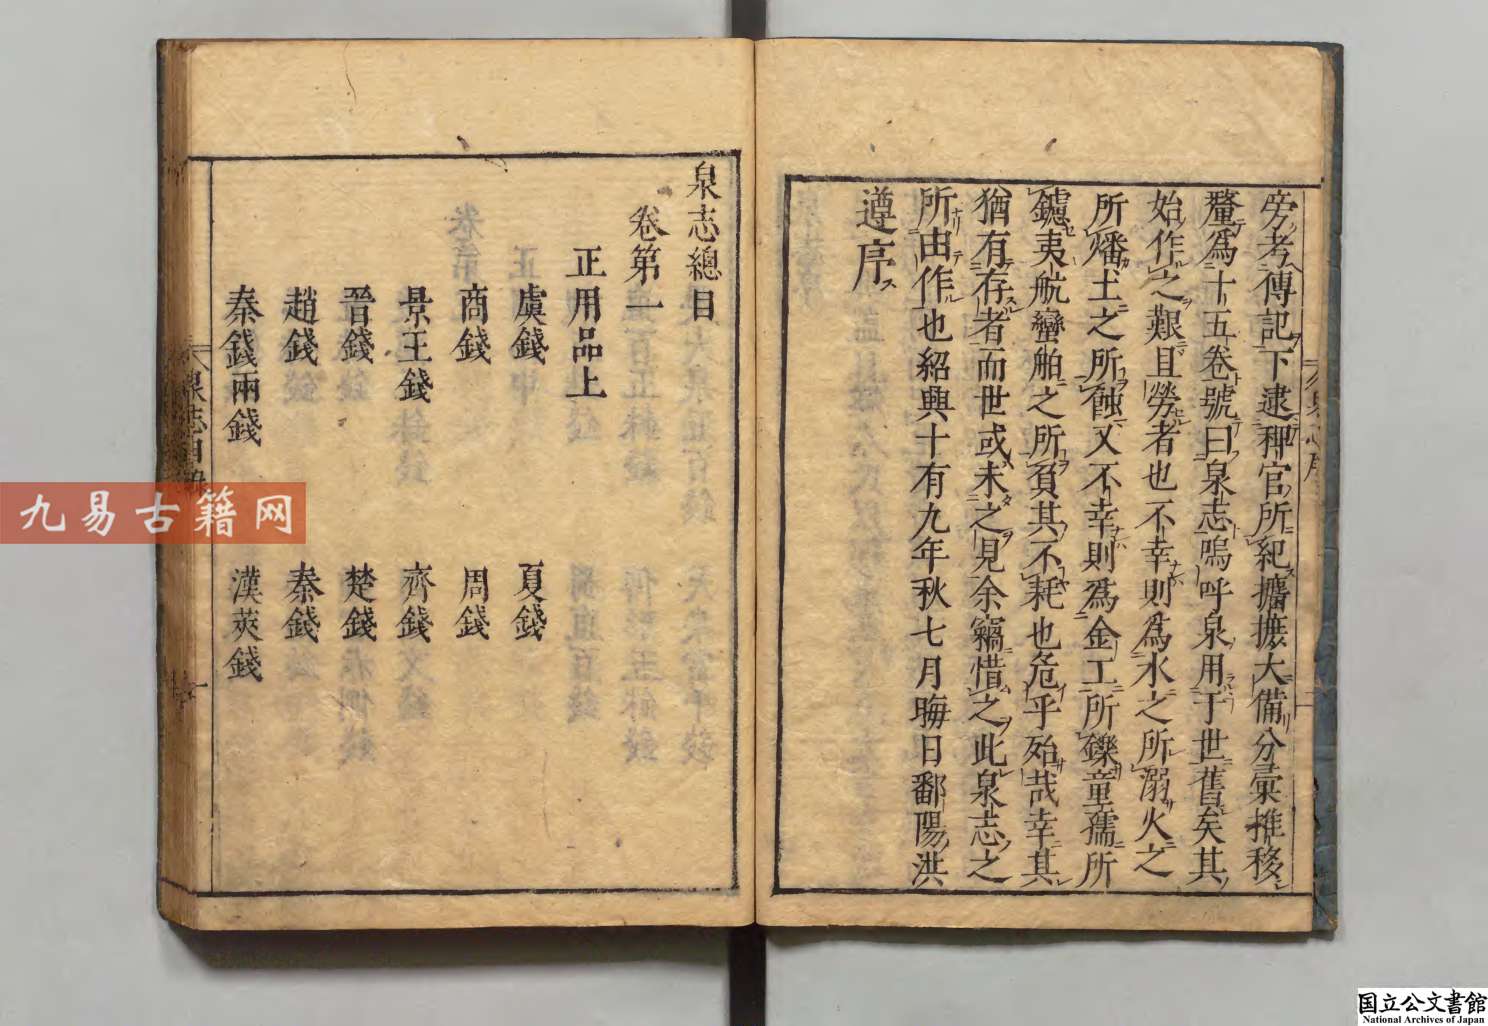 旁考傳記下逮稗官所紀攟摭大備分彙推移
釐爲十五卷號曰泉志嗚呼泉用于世舊矣其
始作之艱且勞者也不幸則爲水之所溺火之
所燔土之所蝕又不幸則爲金工所鑠童孺所
鑢夷航蠻舶之所負其不耗也危乎殆哉幸其
猶有存者而世或未之見余竊惜之此泉志之
所由作也紹興十有九年秋七月晦日鄱陽洪
遵序
泉志總目
卷第一
正用品上
虞錢 夏錢
商錢 周錢
景王錢 齊錢
晉錢 楚錢
趙錢 秦錢
秦錢兩錢 漢莢錢
泉志目錄
九易古籍网
国立公文書館
National Archives of Japan